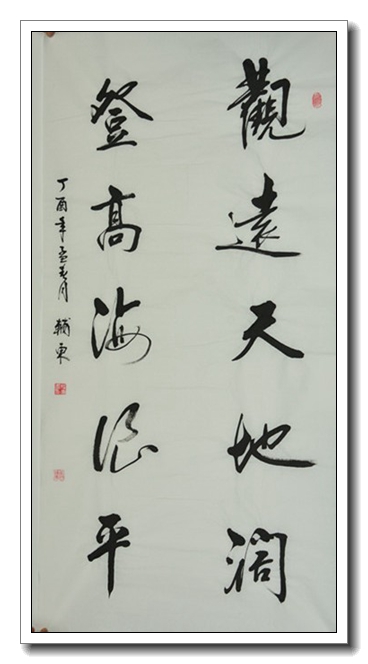 觀遠天地濶
登高海浪平
丁酉年孟春月 輔東